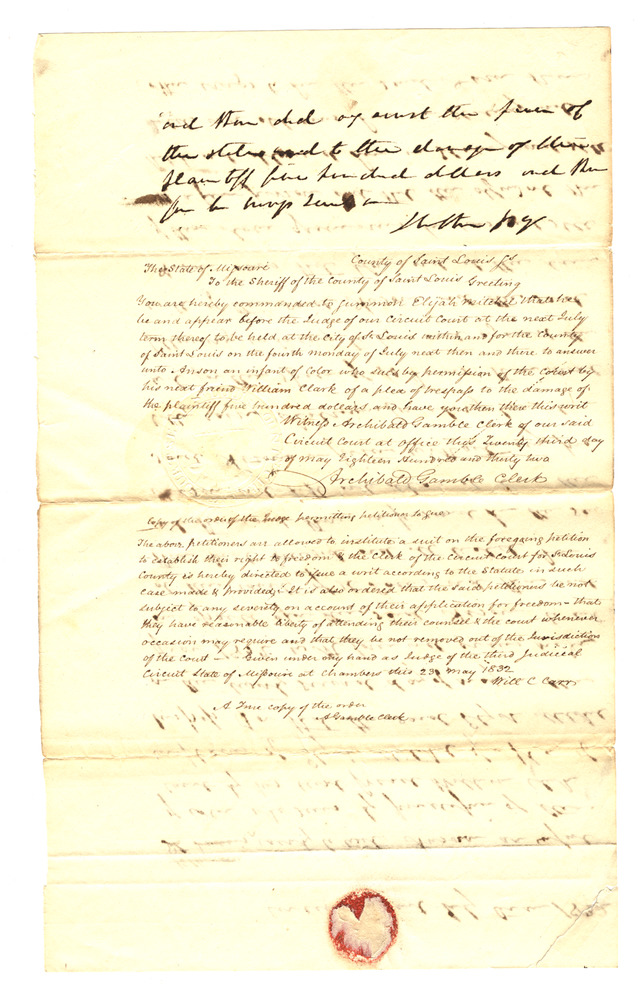 and then did against the peace of
the state and to the damage of the
plaintiff five hundred dollars and then
for he brings suit
County of Saint Louis, Ss.
The State of Missouri
To the Sheriff of the County of Saint Louis Greeting
You are hereby commanded to summon Elijah Mitchel that he
be and appear before the Judge of our Circuit Court at the next July
term thereof to be held at the City of St Louis within and for the County
of Saint Louis on the fourth monday of July next then and there to answer
unto Anson an infant of color who sues by permission of the court by
his next friend William Clark of a plea of trespass to the damage of
the plaintiff five hundred dollars and have you then there this writ
Witness Archibald Gamble Clerk of our said
Circuit Court at office this Twenty third day
of May Eighteen Hundred and thirty two
Archibald Gamble Clerk
Copy of the order of the Judge permitting petitioner to sue
The above petitioners are allowed to institute a suit on the foregoing petition
to establish their right to freedom & the Clerk of the Circuit Court for St Louis
County is hereby directed to issue a writ according to the Statute in such
case made & provided; It is also ordered that the said petitioners be not
subject to any severity on account of their application for freedom - that
they have reasonable liberty of attending their counsel & the court whenever
occasion may require and that they be not removed out of the Jurisdiction
of the Court — Given under my hand as Judge of the third Judicial
Circuit State of Missouri at Chambers this 23 May 1832
Will C Carr
A True copy of the order
A Gamble Clerk